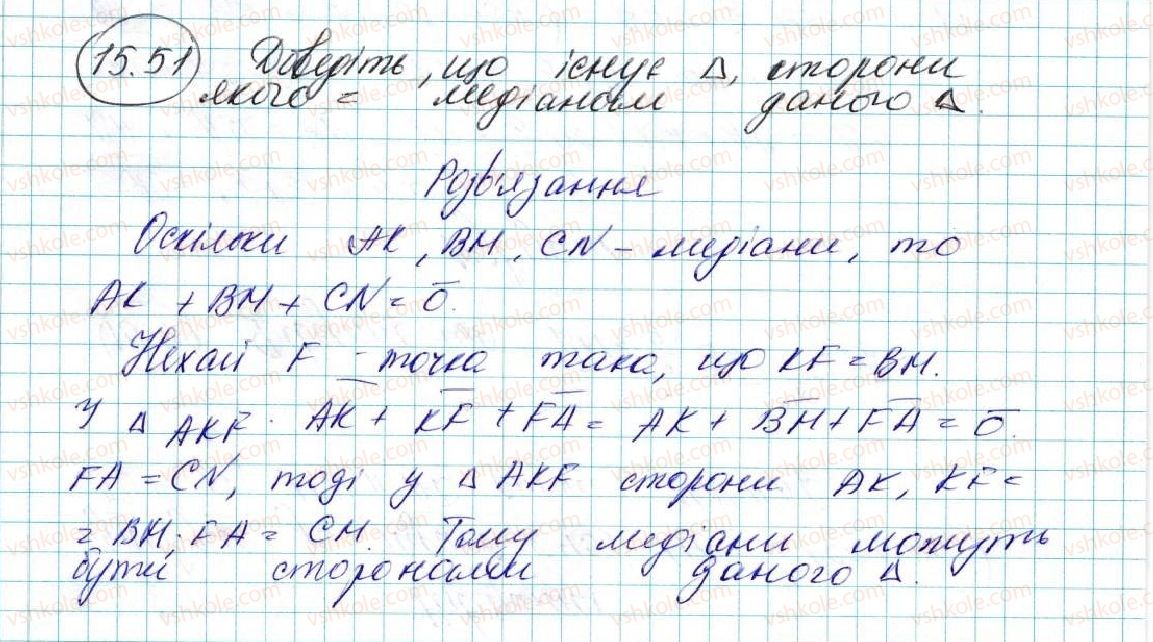 15.51 Доведіть, що існує Δ, сторони
якого = медіанам даного Δ.
Розв'язання
Оскільки AK, BM, CN – медіани, то
AK + BM + CN = ō.
Нехай F – точка така, що KF = BM.
У Δ AKF. AK + K̅F̅ + F̅A̅ = AK + B̅M̅ + F̅A̅ = ō.
FA = CN, тоді у Δ AKF сторони AK, KF =
= BM; FA = CM. Тому медіани можуть
бути сторонами даного Δ.